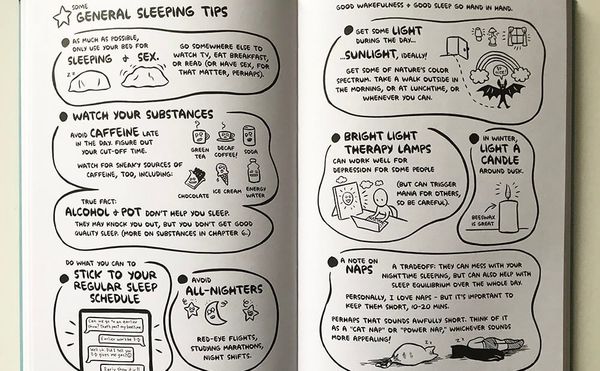 SOME
GENERAL SLEEPING TIPS
AS MUCH AS POSSIBLE,
ONLY USE YOUR BED FOR
SLEEPING & SEX.
GO SOMEWHERE ELSE TO
WATCH TV, EAT BREAKFAST,
OR READ (OR HAVE SEX, FOR
THAT MATTER, PERHAPS).
WATCH YOUR SUBSTANCES
AVOID CAFFEINE LATE
IN THE DAY. FIGURE OUT
YOUR CUT-OFF TIME.
WATCH FOR SNEAKY SOURCES OF
CAFFEINE, TOO, INCLUDING:
GREEN
TEA
DECAF
COFFEE!
SODA
CHOCOLATE
ICE CREAM
ENERGY
WATER
TRUE FACT:
ALCOHOL + POT DON'T HELP YOU SLEEP.
THEY MAY KNOCK YOU OUT, BUT YOU DON'T GET GOOD
QUALITY SLEEP. (MORE ON SUBSTANCES IN CHAPTER 6.)
DO WHAT YOU CAN TO
STICK TO YOUR
REGULAR SLEEP
SCHEDULE
AVOID
ALL-NIGHTERS
RED-EYE FLIGHTS,
STUDYING MARATHONS,
NIGHT SHIFTS.
GOOD WAKEFULNESS + GOOD SLEEP GO HAND IN HAND.
GET SOME LIGHT
DURING THE DAY...
...SUNLIGHT, IDEALLY!
GET SOME OF NATURE'S COLOR
SPECTRUM. TAKE A WALK OUTSIDE IN
THE MORNING, OR AT LUNCHTIME, OR
WHENEVER YOU CAN.
BRIGHT LIGHT
THERAPY LAMPS
CAN WORK WELL FOR
DEPRESSION FOR SOME PEOPLE
(BUT CAN TRIGGER
MANIA FOR OTHERS,
SO BE CAREFUL).
IN WINTER,
LIGHT A
CANDLE
AROUND DUSK.
BEESWAX
IS GREAT
A NOTE ON
NAPS
A TRADEOFF: THEY CAN MESS WITH YOUR
NIGHTTIME SLEEPING, BUT CAN ALSO HELP WITH
SLEEP EQUILIBRIUM OVER THE WHOLE DAY.
PERSONALLY, I LOVE NAPS - BUT IT'S IMPORTANT TO
KEEP THEM SHORT, 10-20 MINS.
PERHAPS THAT SOUNDS AWFULLY SHORT. THINK OF IT
AS A "CAT NAP" OR "POWER NAP," WHICHEVER SOUNDS
MORE APPEALING!